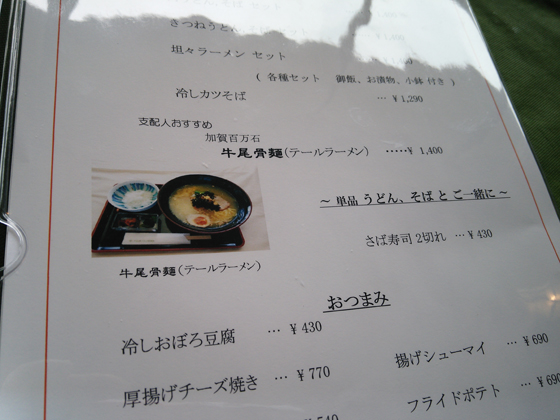 きつねうどん
坦々ラーメン セット
( 各種セット 御飯、お漬物、小鉢 付き )
冷しカツそば … ¥1,290
支配人おすすめ
加賀百万石
牛尾骨麺(テールラーメン) ‥‥‥¥ 1,400
~ 単品 うどん、そば と ご一緒に ~
さば寿司 2切れ … ¥430
牛尾骨麺(テールラーメン)
おつまみ
冷しおぼろ豆腐 … ¥430
揚げシューマイ … ¥690
厚揚げチーズ焼き … ¥770
フライドポテト … ¥690